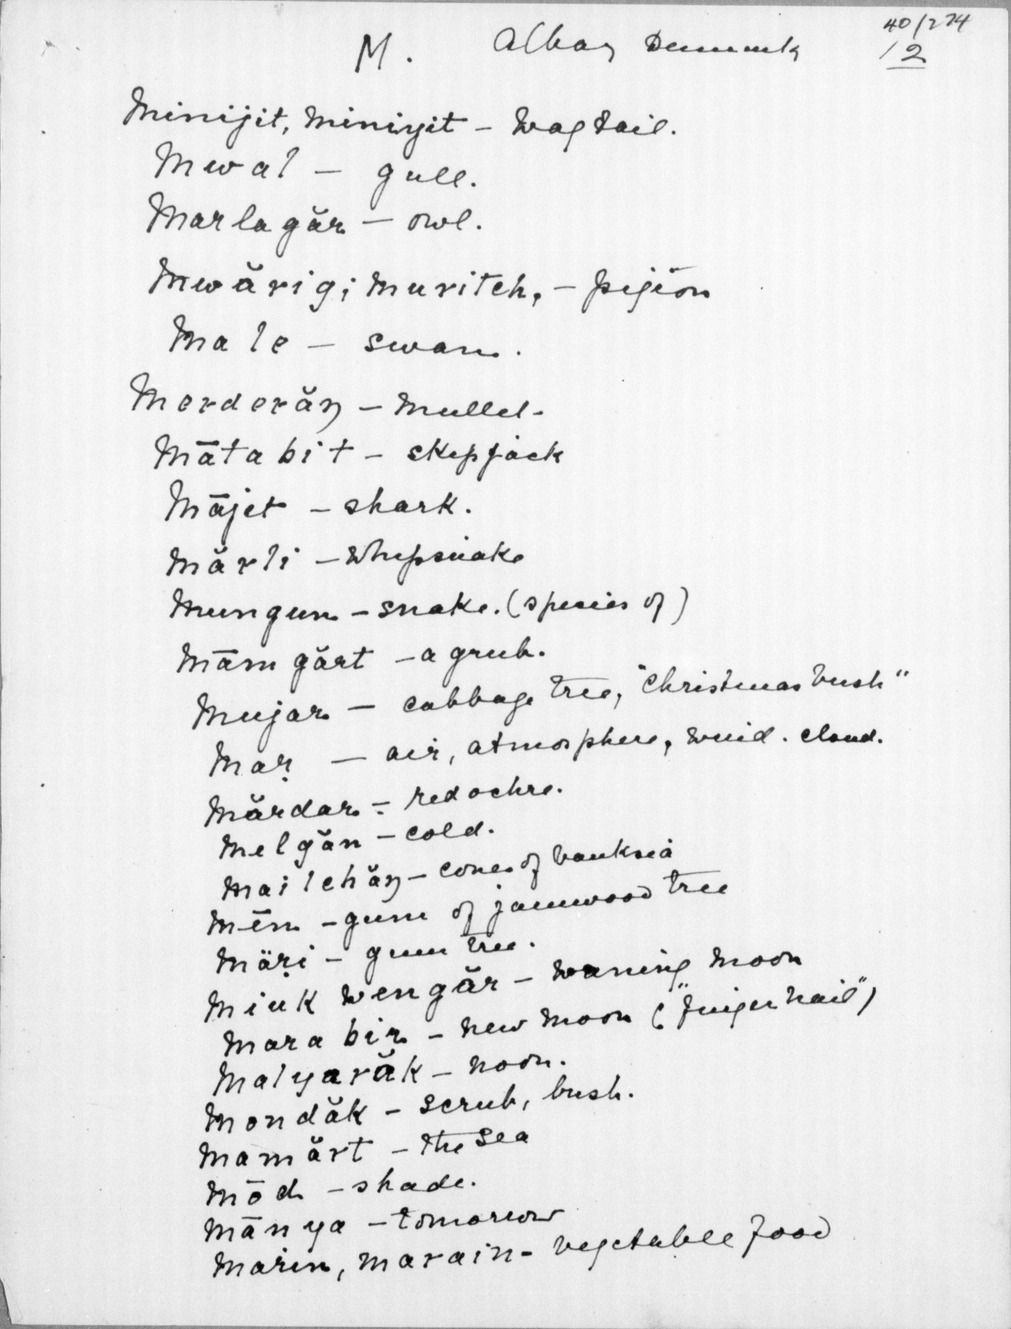 40/274
M. Albany Denmark 12
Minijit, Miniyit - Wagtail.
Mwal - gull.
Marlagăr - owl.
Mwărig; Muritch, - pigeon
Male - swan.
Merderăny - Mullet.
Mātabit - skipjack
Mājet - shark.
Mărli - Whipsnake
Mungun - snake. (species of)
Mām gărt - a grub.
Mujar - cabbage tree, "Christmas bush"
Maṛ - air, atmosphere, wind. cloud.
Mărdar - red ochre.
Melgăn - cold.
Mailchăny - cones of banksia
Mēn - gum of jamwood tree
Mäṛi - gum tree.
Miuk Wengăr - Waning Moon
Mara bir - New Moon ("finger nail")
Malyarăk - Noon.
Mondăk - scrub, bush.
Mamărt - the Sea
Mōd - shade.
Mānya - tomorrow
Marin, Marain - vegetable food